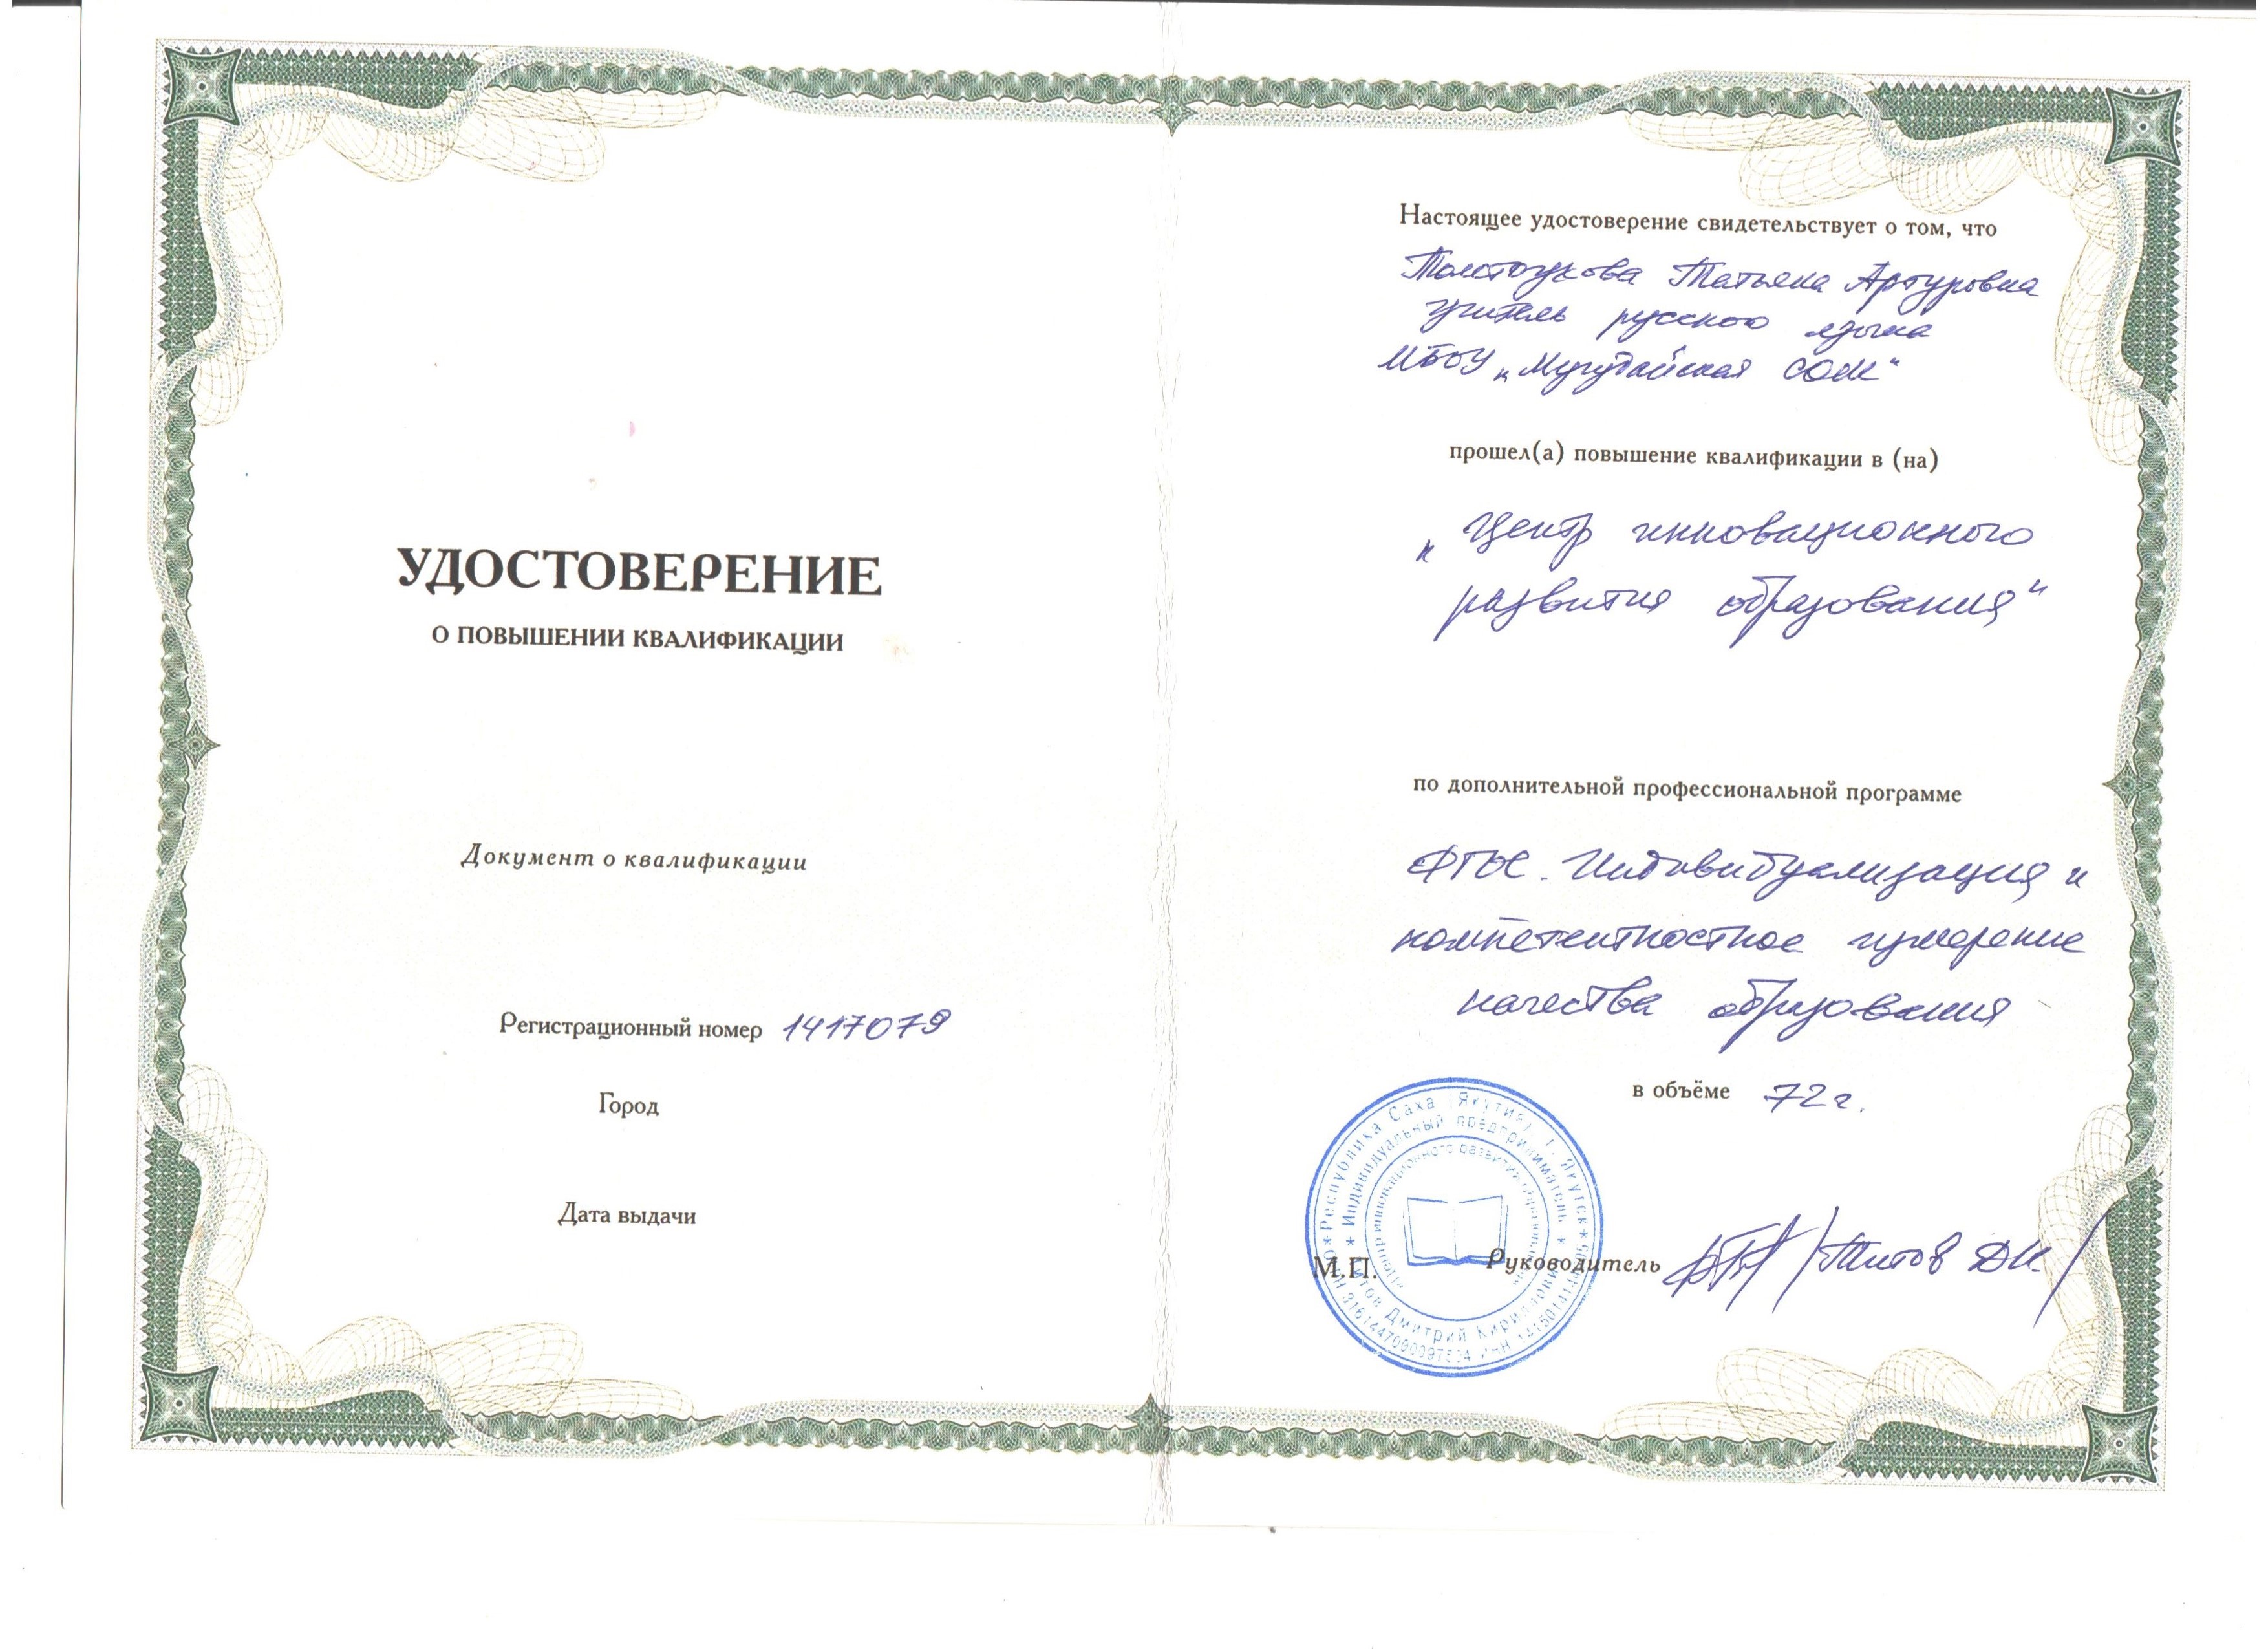 УДОСТОВЕРЕНИЕ
О ПОВЫШЕНИИ КВАЛИФИКАЦИИ
Документ о квалификации
Регистрационный номер 1417079
Город
Дата выдачи
Настоящее удостоверение свидетельствует о том, что
Толстоухова Татьяна Артуровна
учитель русского языка
МБОУ „Мугудайская СОШ"
прошел(а) повышение квалификации в (на)
„Центр инновационного
развития образования"
по дополнительной профессиональной программе
ФГОС. Индивидуализация и
компетентностное измерение
качества образования
в объёме 72 ч.
Республика Саха (Якутия) г. Якутск
Индивидуальный предприниматель
Титов Дмитрий Кириллович
Центр инновационного развития образования
М.П.
Руководитель /Титов Д.К./